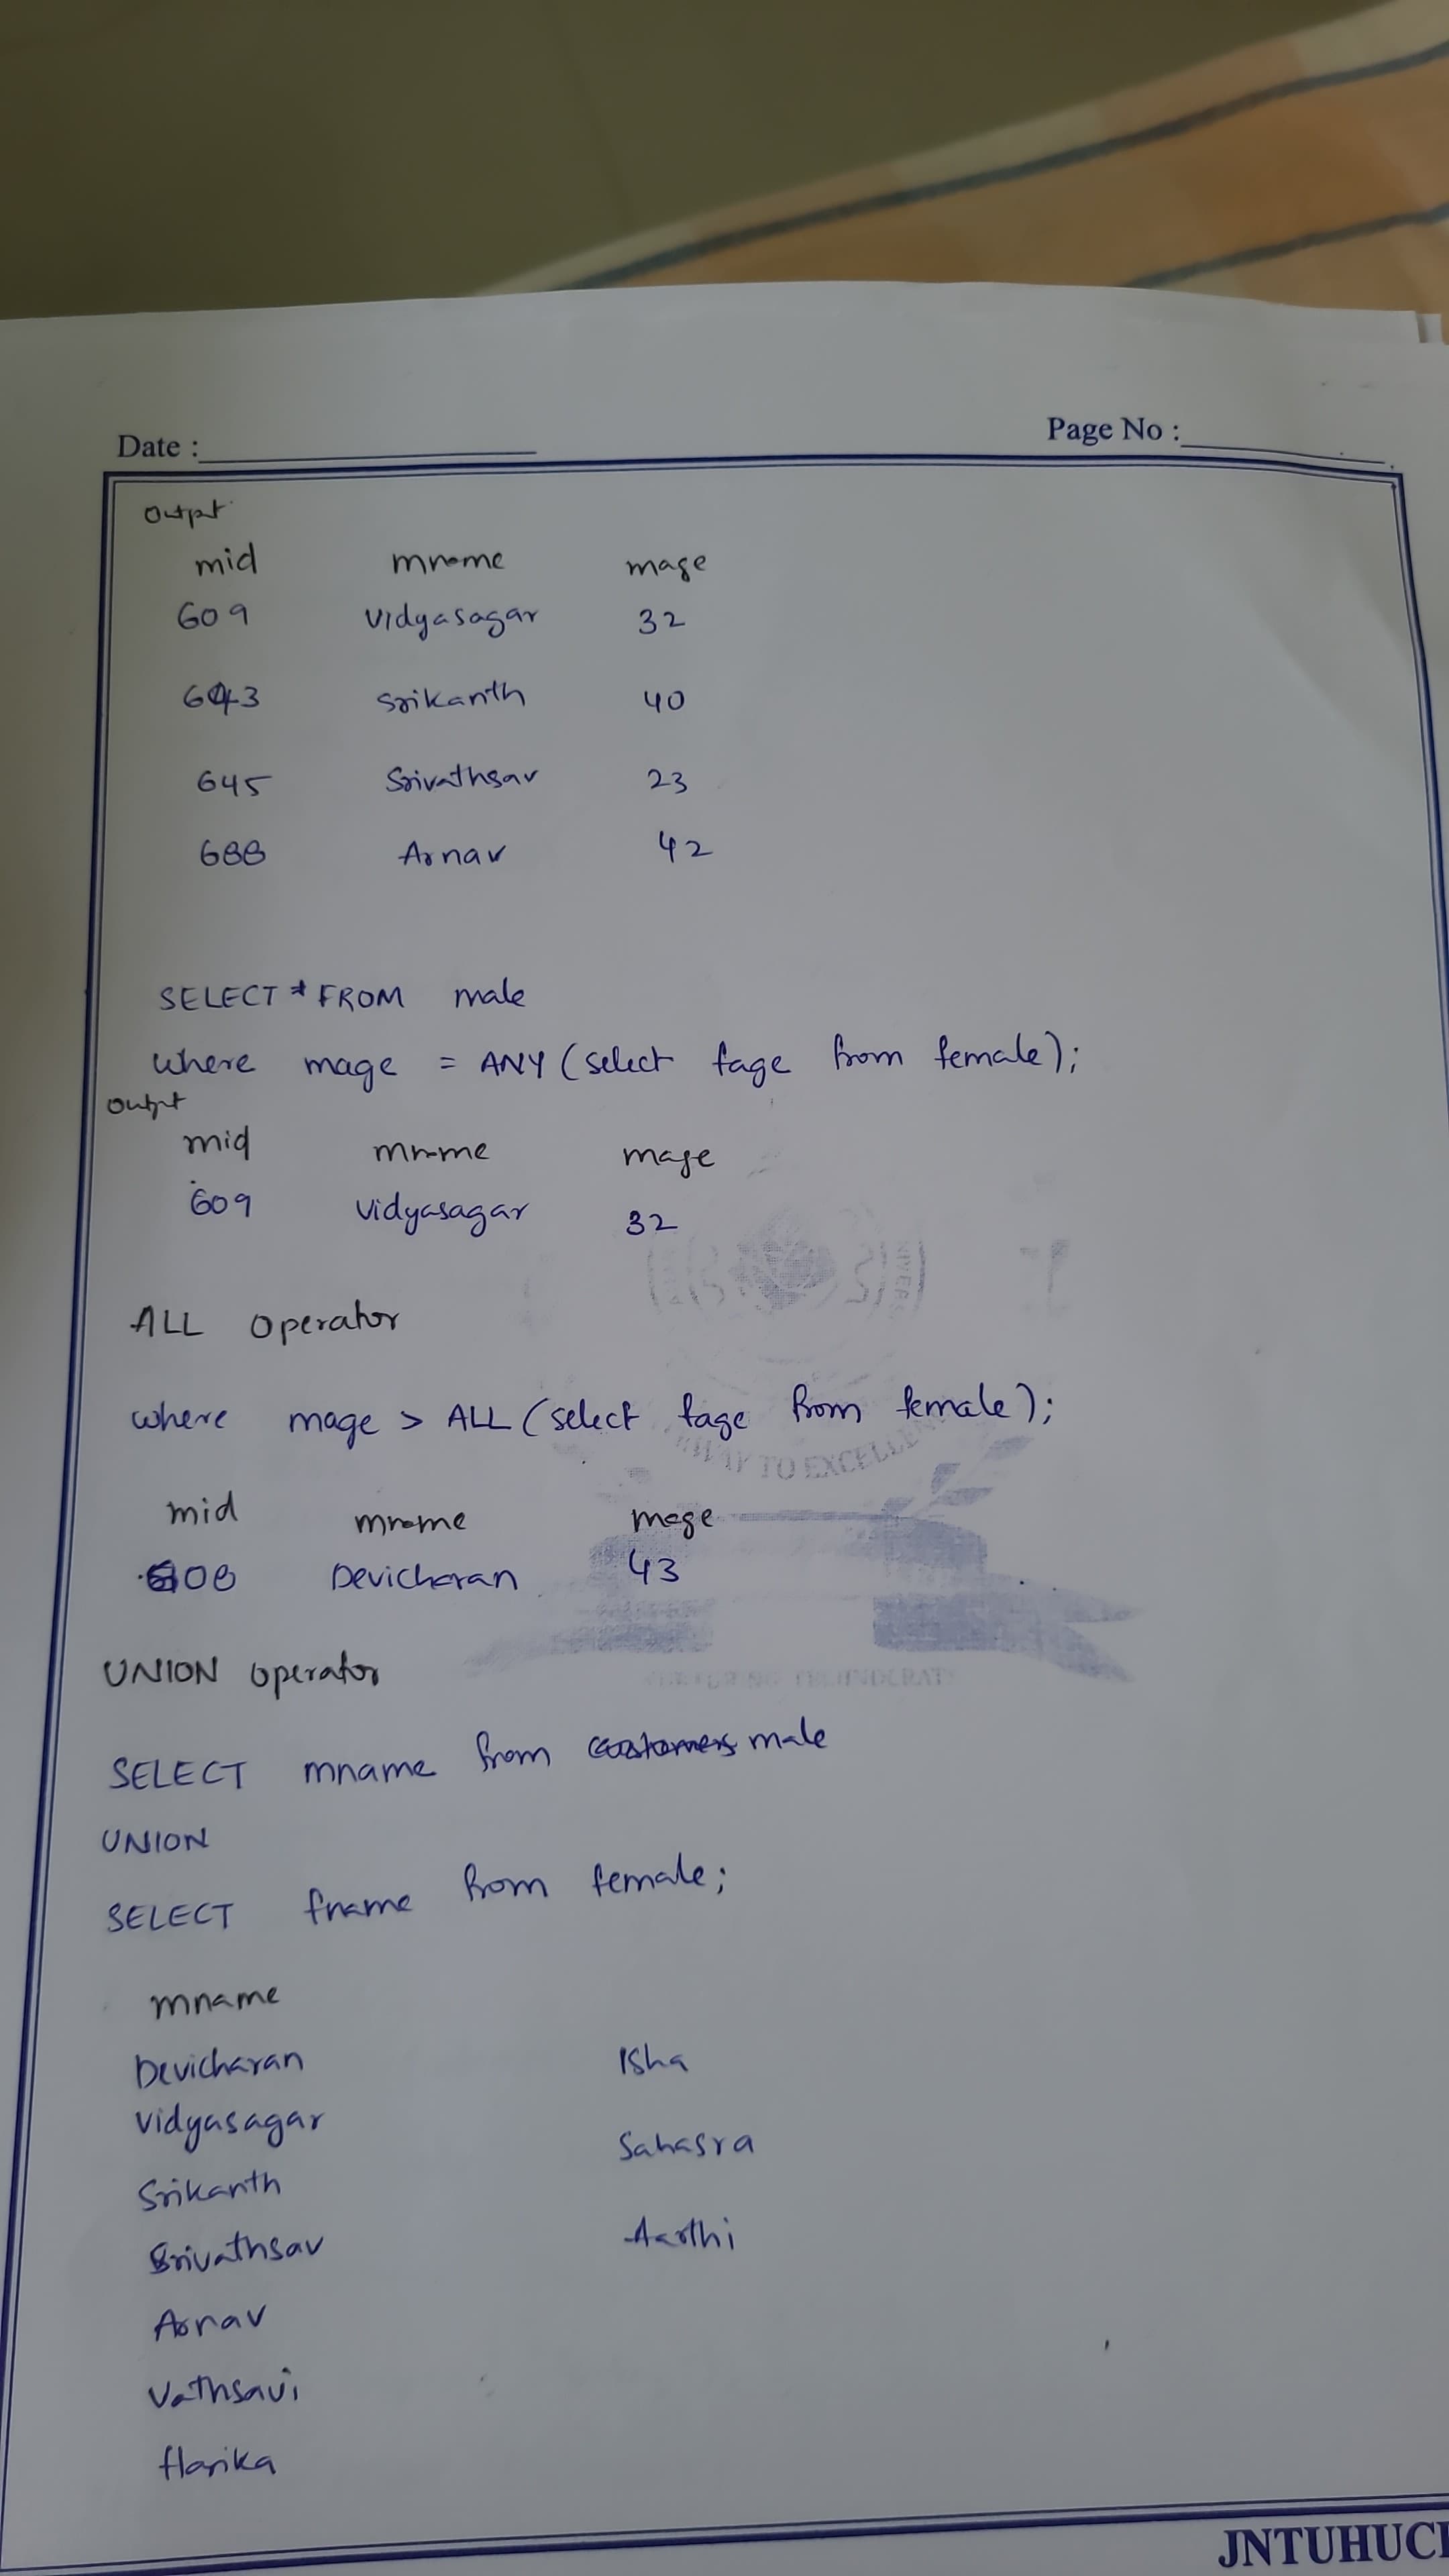 Date :
Page No :
Output
mid mname mage
609 Vidyasagar 32
643 Srikanth 40
645 Srivathsav 23
688 Arnav 42
SELECT * FROM male
where mage = ANY (select fage from female);
Output
mid mname mage
609 Vidyasagar 32
ALL operator
where mage > ALL (select fage from female);
mid mname mage
608 Devicharan 43
UNION operator
SELECT mname from customers male
UNION
SELECT fname from female;
mname
Devicharan Isha
Vidyasagar
Sahasra
Srikanth
Srivathsav Aarthi
Arnav
Vathsavi
Harika
TO EXCELLEN
JNTUHUC